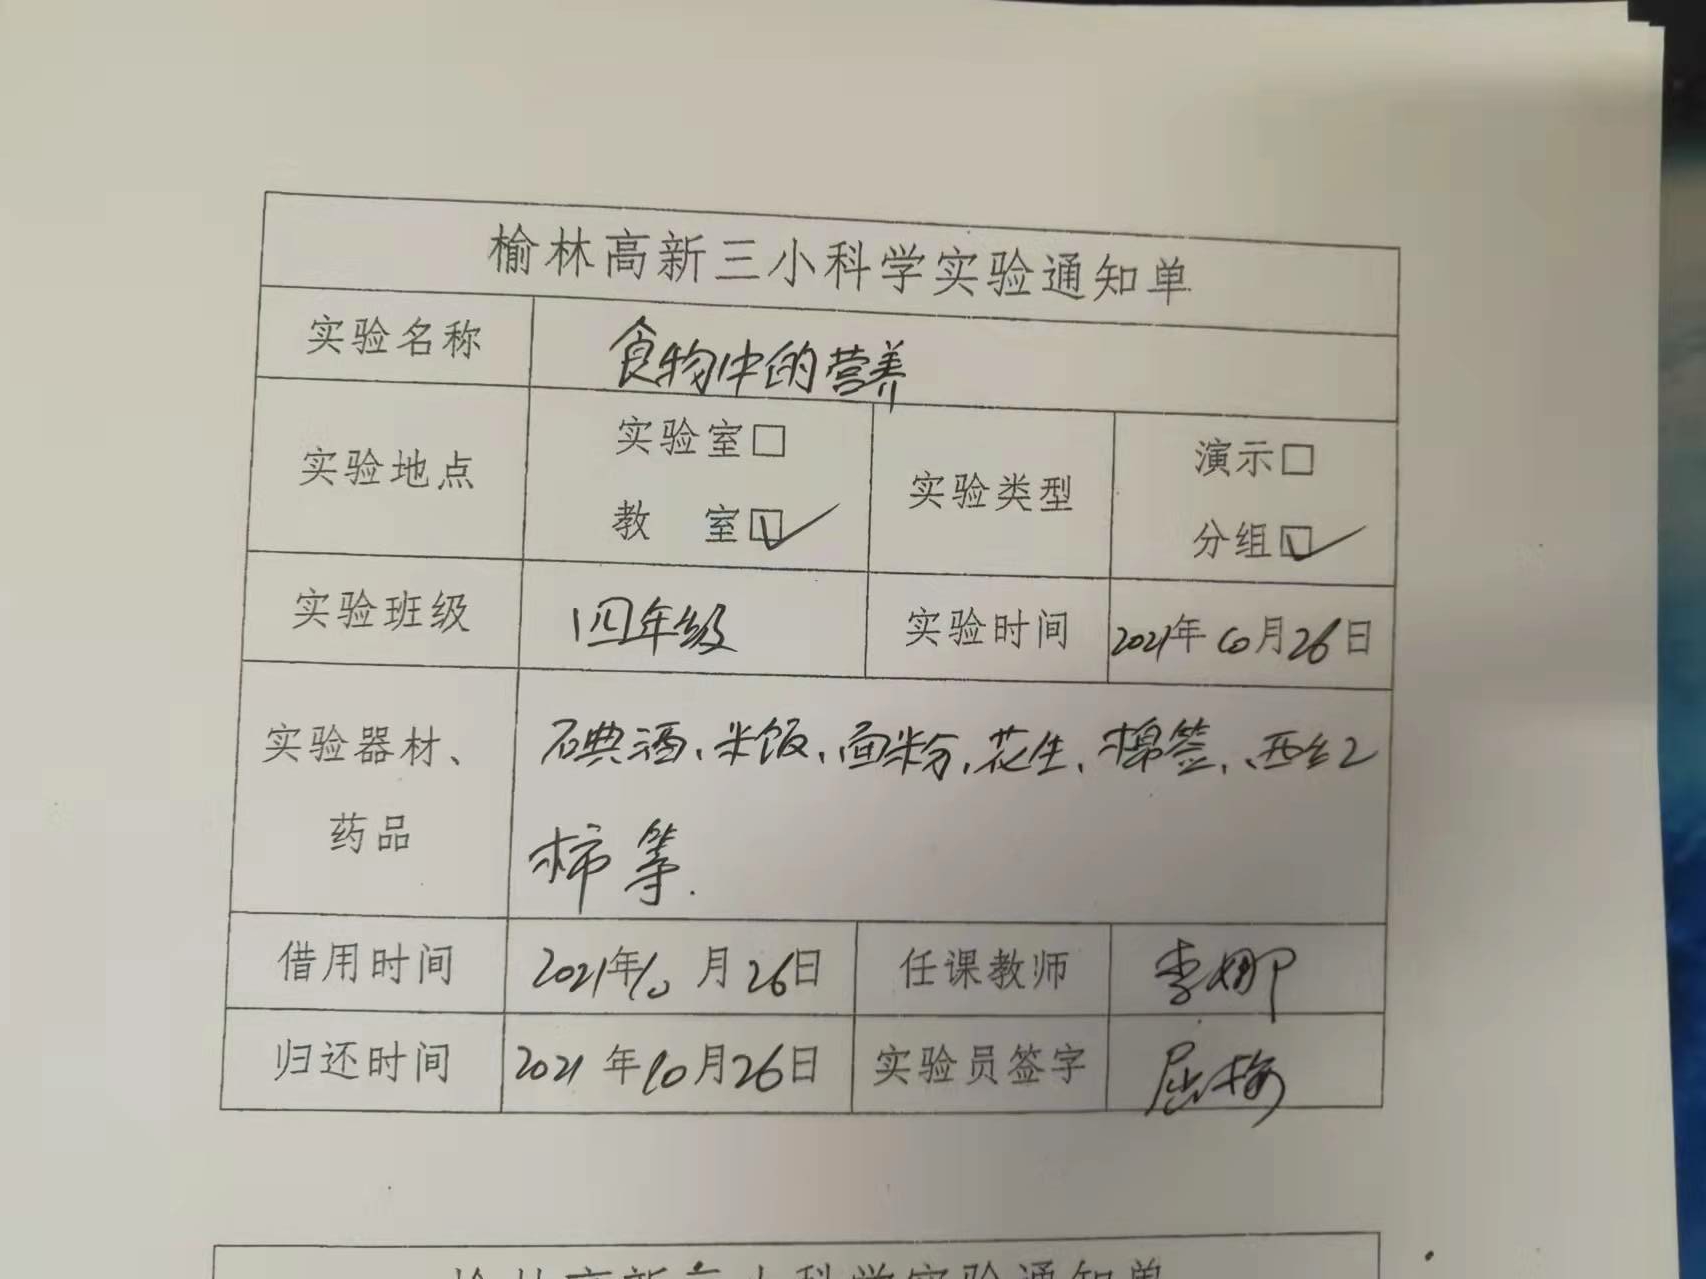 榆林高新三小科学实验通知单
实验名称 食物中的营养
实验地点 实验室□ 教 室☑ 实验类型 演示□ 分组☑
实验班级 四年级 实验时间 2021年10月26日
实验器材、药品 碘酒、米饭、面粉、花生、棉签、西红
柿等.
借用时间 2021年10月26日 任课教师 李娜
归还时间 2021年10月26日 实验员签字 屈梅
榆林高新三小科学实验通知单